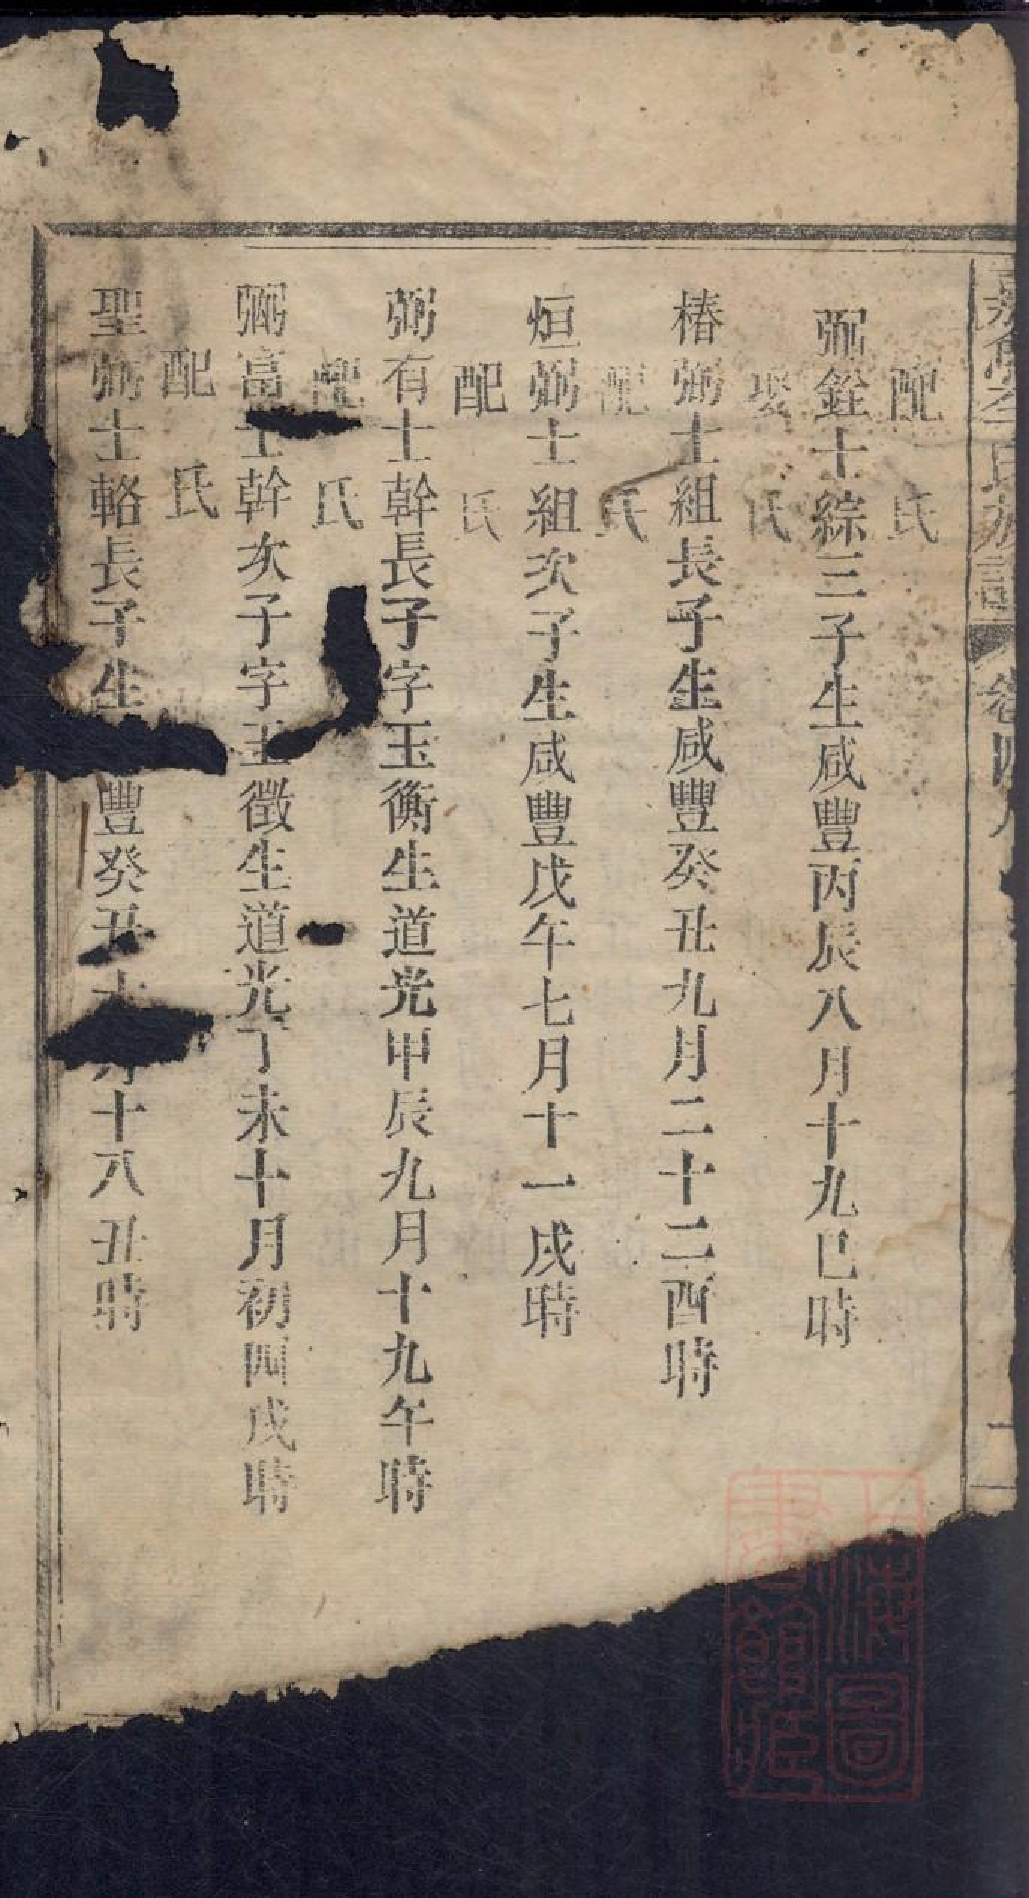 氏族譜 卷四
配 氏
弼銓士綜三子生咸豐丙辰八月十九巳時
娶 氏
椿弼士組長子生咸豐癸丑九月二十二酉時
配 氏
烜弼士組次子生咸豐戊午七月十一戌時
配 氏
弼有士幹長子字玉衡生道光甲辰九月十九午時
配 氏
弼富士幹次子字玉徵生道光丁未十月初四戌時
配 氏
聖弼士輅長子生 豐癸丑 月十八丑時
上海圖書館藏